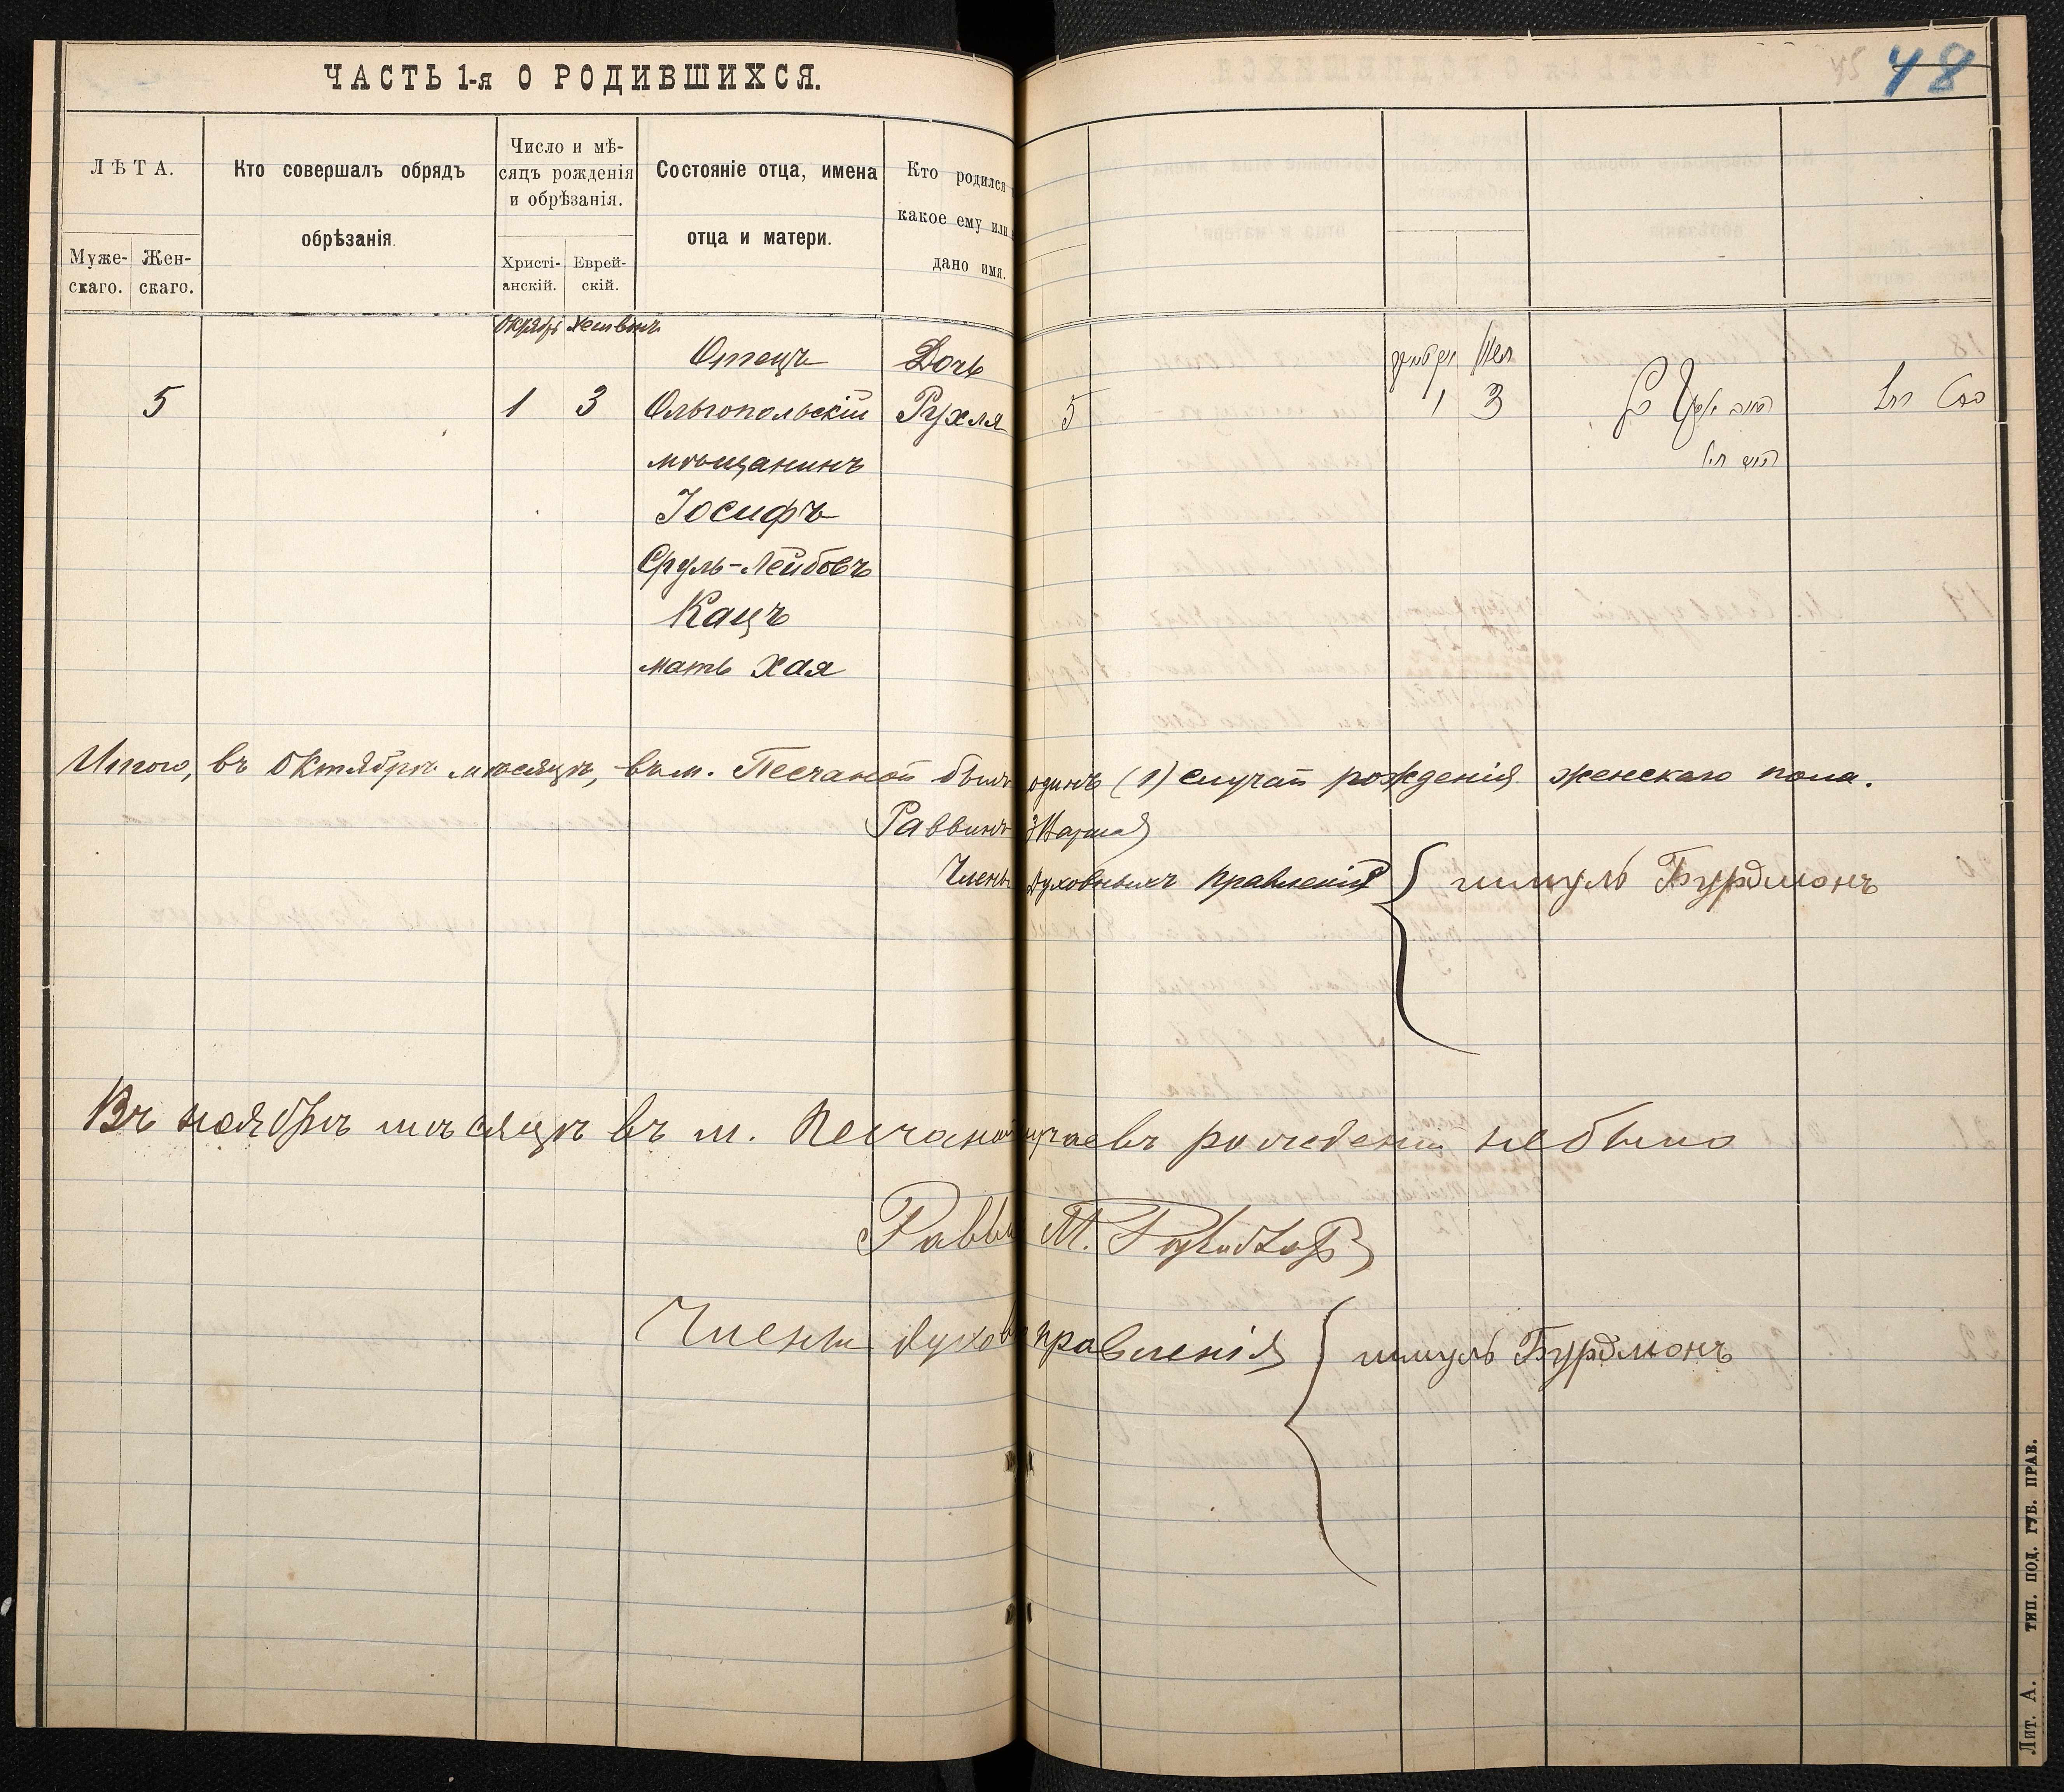 ЧАСТЬ 1-я О РОДИВШИХСЯ.
48
ЛѢТА.
Муже-
скаго.
Жен-
скаго.
Кто совершалъ обрядъ
обрѣзанія.
Число и мѣ-
сяцъ рожденія
и обрѣзанія.
Христі-
анскій.
Еврей-
скій.
Состояніе отца, имена
отца и матери.
Кто родился
какое ему или
дано имя.
Октябрь Хешвонъ
Отецъ
Дочь
5
1
3
Ольгопольскій
Рухля
мѣщанинъ
Іосифъ
Сруль-Лейбовъ
Кацъ
мать Хая
5
1
3
Итого, въ Октябрѣ мѣсяцѣ, въ м. Песчаной былъ одинъ (1) случай рожденія женскаго пола.
Раввинъ
Члены Духовныхъ Правленія
шмуль Бурдмонъ
Въ ноябрѣ мѣсяцѣ въ м. Песчаной случаевъ рожденій не было
Равви М.
Члены духовн правленія
шмуль Бурдмонъ
Лит. А. ТИП. ПОД. ГУБ. ПРАВ.